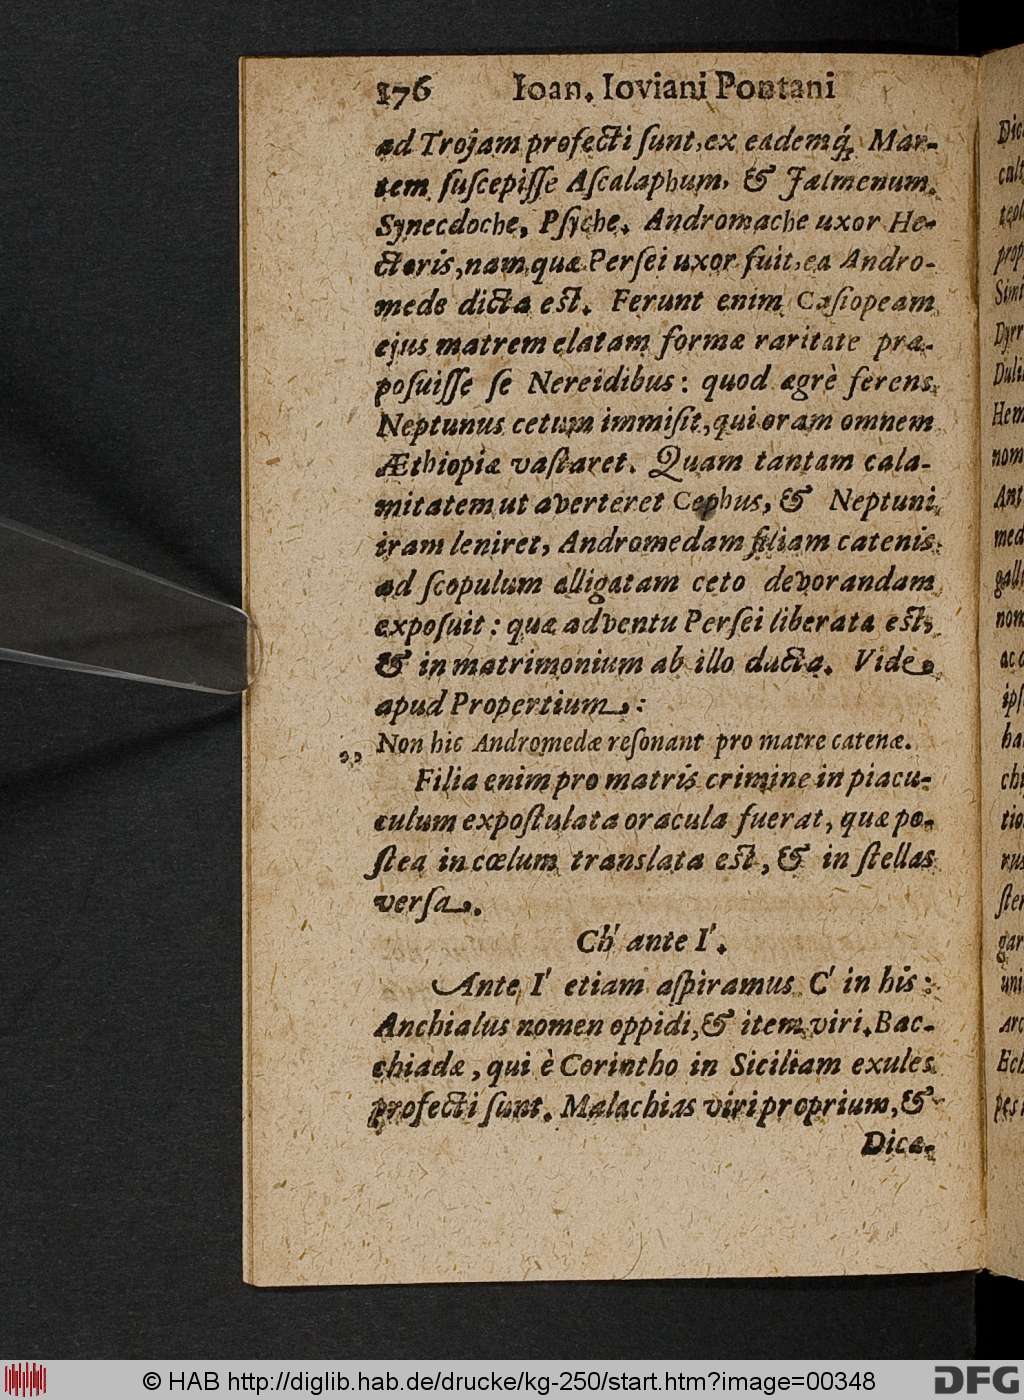 176 Ioan. Ioviani Pontani
ad Trojam profecti ſunt, ex eademq́; Mar-
tem ſuſcepiſſe Aſcalaphum, & Jalmenum.
Synecdoche, Pſyche. Andromache uxor He-
ctoris, nam quæ Perſei uxor fuit, ea Andro-
mede dicta eſt. Ferunt enim Caſiopeam
ejus matrem elatam formæ raritate præ-
poſuiſſe ſe Nereidibus: quod ægrè ferens
Neptunus cetum immiſit, qui oram omnem
Æthiopiæ vaſtaret. Quam tantam cala-
mitatem ut averteret Cephus, & Neptuni
iram leniret, Andromedam filiam catenis
ad ſcopulum alligatam ceto devorandam
expoſuit: quæ adventu Perſei liberata eſt,
& in matrimonium ab illo ducta. Vide
apud Propertium:
,, Non hic Andromedæ reſonant pro matre catenæ.
Filia enim pro matris crimine in piacu-
culum expoſtulata oracula fuerat, quæ po-
ſtea in cœlum translata eſt, & in ſtellas
verſa.
Ch' ante I'.
Ante I' etiam aſpiramus C' in his:
Anchialus nomen oppidi, & item viri. Bac-
chiadæ, qui è Corintho in Siciliam exules
profecti ſunt. Malachias viri proprium, &
Dicæ-
Dic
cult
prop
Simi
Dyrr
Hem
nom
Ant
med
gall
nom
ipſ
ſter
gar
uni
Arc
Ech
pes
© HAB http://diglib.hab.de/drucke/kg-250/start.htm?image=00348
DFG